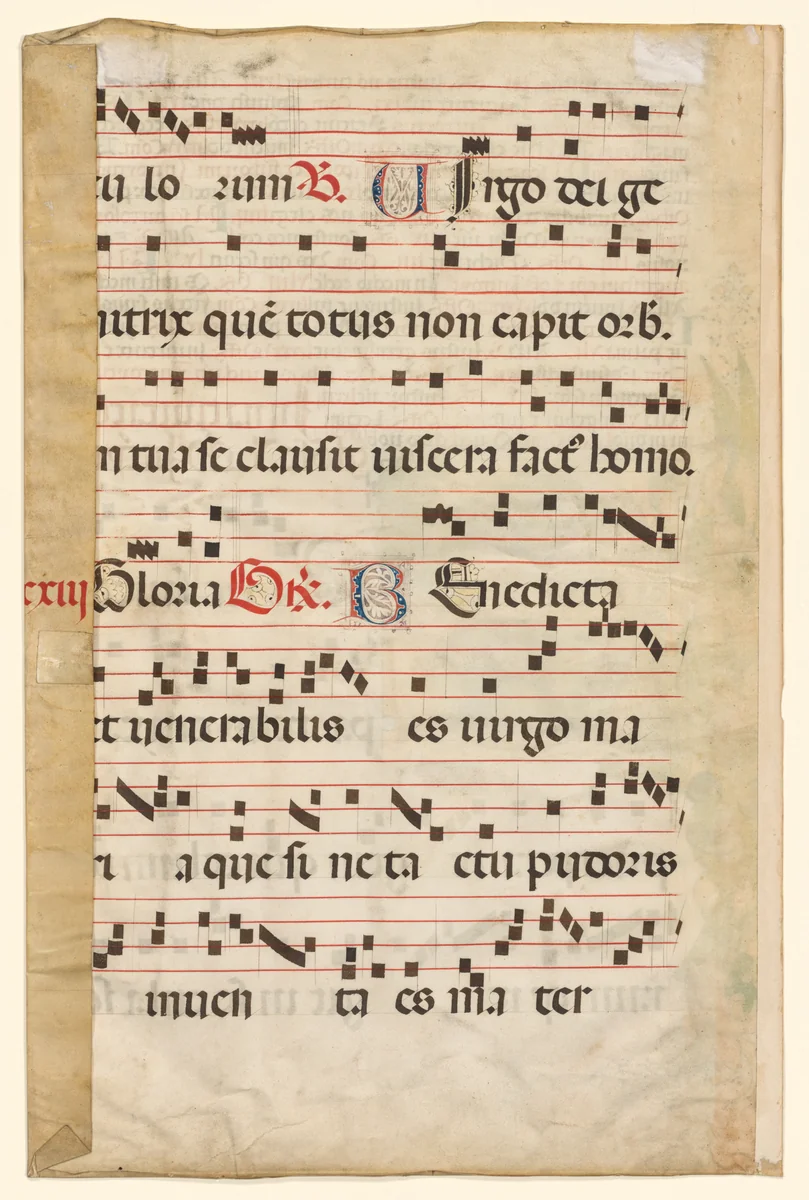 cu lo rum V. Virgo dei ge
nitrix quē totus non capit orb.
n tua se clausit uiscera fact' homo.
cxiij Gloria Gr. Benedicta
et uenerabilis es uirgo ma
ri a que si ne ta ctu pudoris
inuen ta es ma ter